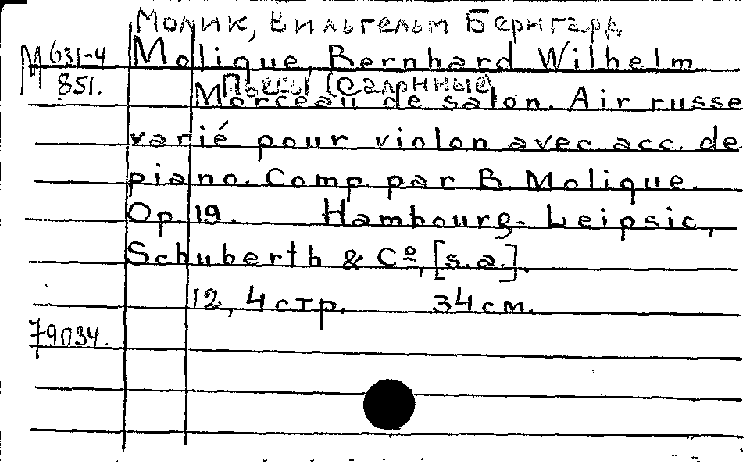 Молик, Вильгельм Бернгард
M 631-4 Molique, Bernhard Wilhelm
851. Пьесы (Салонные)
Morceau de salon. Air russe
varié pour violon avec acc. de
piano. Comp. par B. Molique.
Op. 19. Hambourg - Leipsic,
Schuberth & Cº, [s.a.].
12, 4 стр. 34 см.
79034.